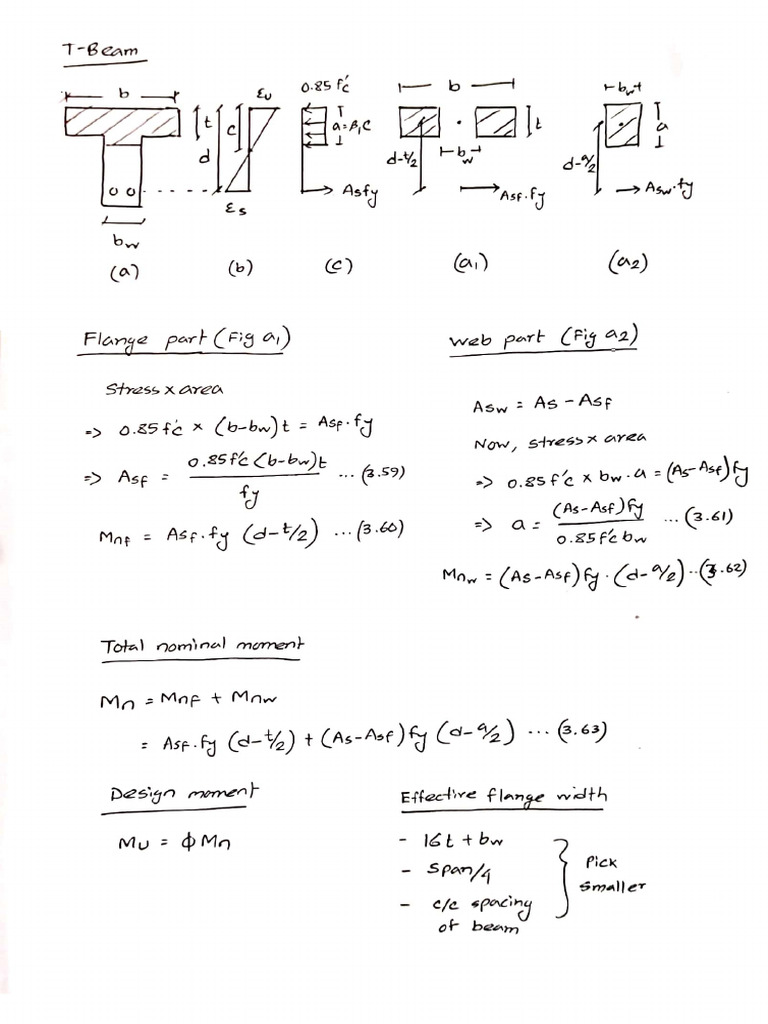 T-Beam
b
t
c
d
bw
(a)
εu
εs
(b)
0.85 f'c
a=β1c
Asfy
(c)
b
t
bw
d-t/2
Asf.fy
(a1)
bw
a
d-a/2
Asw.fy
(a2)
Flange part (Fig a1)
Stress x area
=> 0.85 f'c x (b-bw)t = Asf.fy
=> Asf = 0.85f'c (b-bw)t / fy ... (3.59)
Mnf = Asf.fy (d-t/2) ...(3.60)
Web part (Fig a2)
Asw = As - Asf
Now, stress x area
=> 0.85 f'c x bw.a = (As-Asf)fy
=> a = (As-Asf)fy / 0.85f'c bw ... (3.61)
Mnw = (As-Asf)fy.(d-a/2)...(3.62)
Total nominal moment
Mn = Mnf + Mnw
= Asf.fy (d-t/2) + (As-Asf)fy (d-a/2) ... (3.63)
Design moment
Mu = ϕMn
Effective flange width
- 16t + bw
- Span/4
- c/c spacing
of beam
Pick
smaller